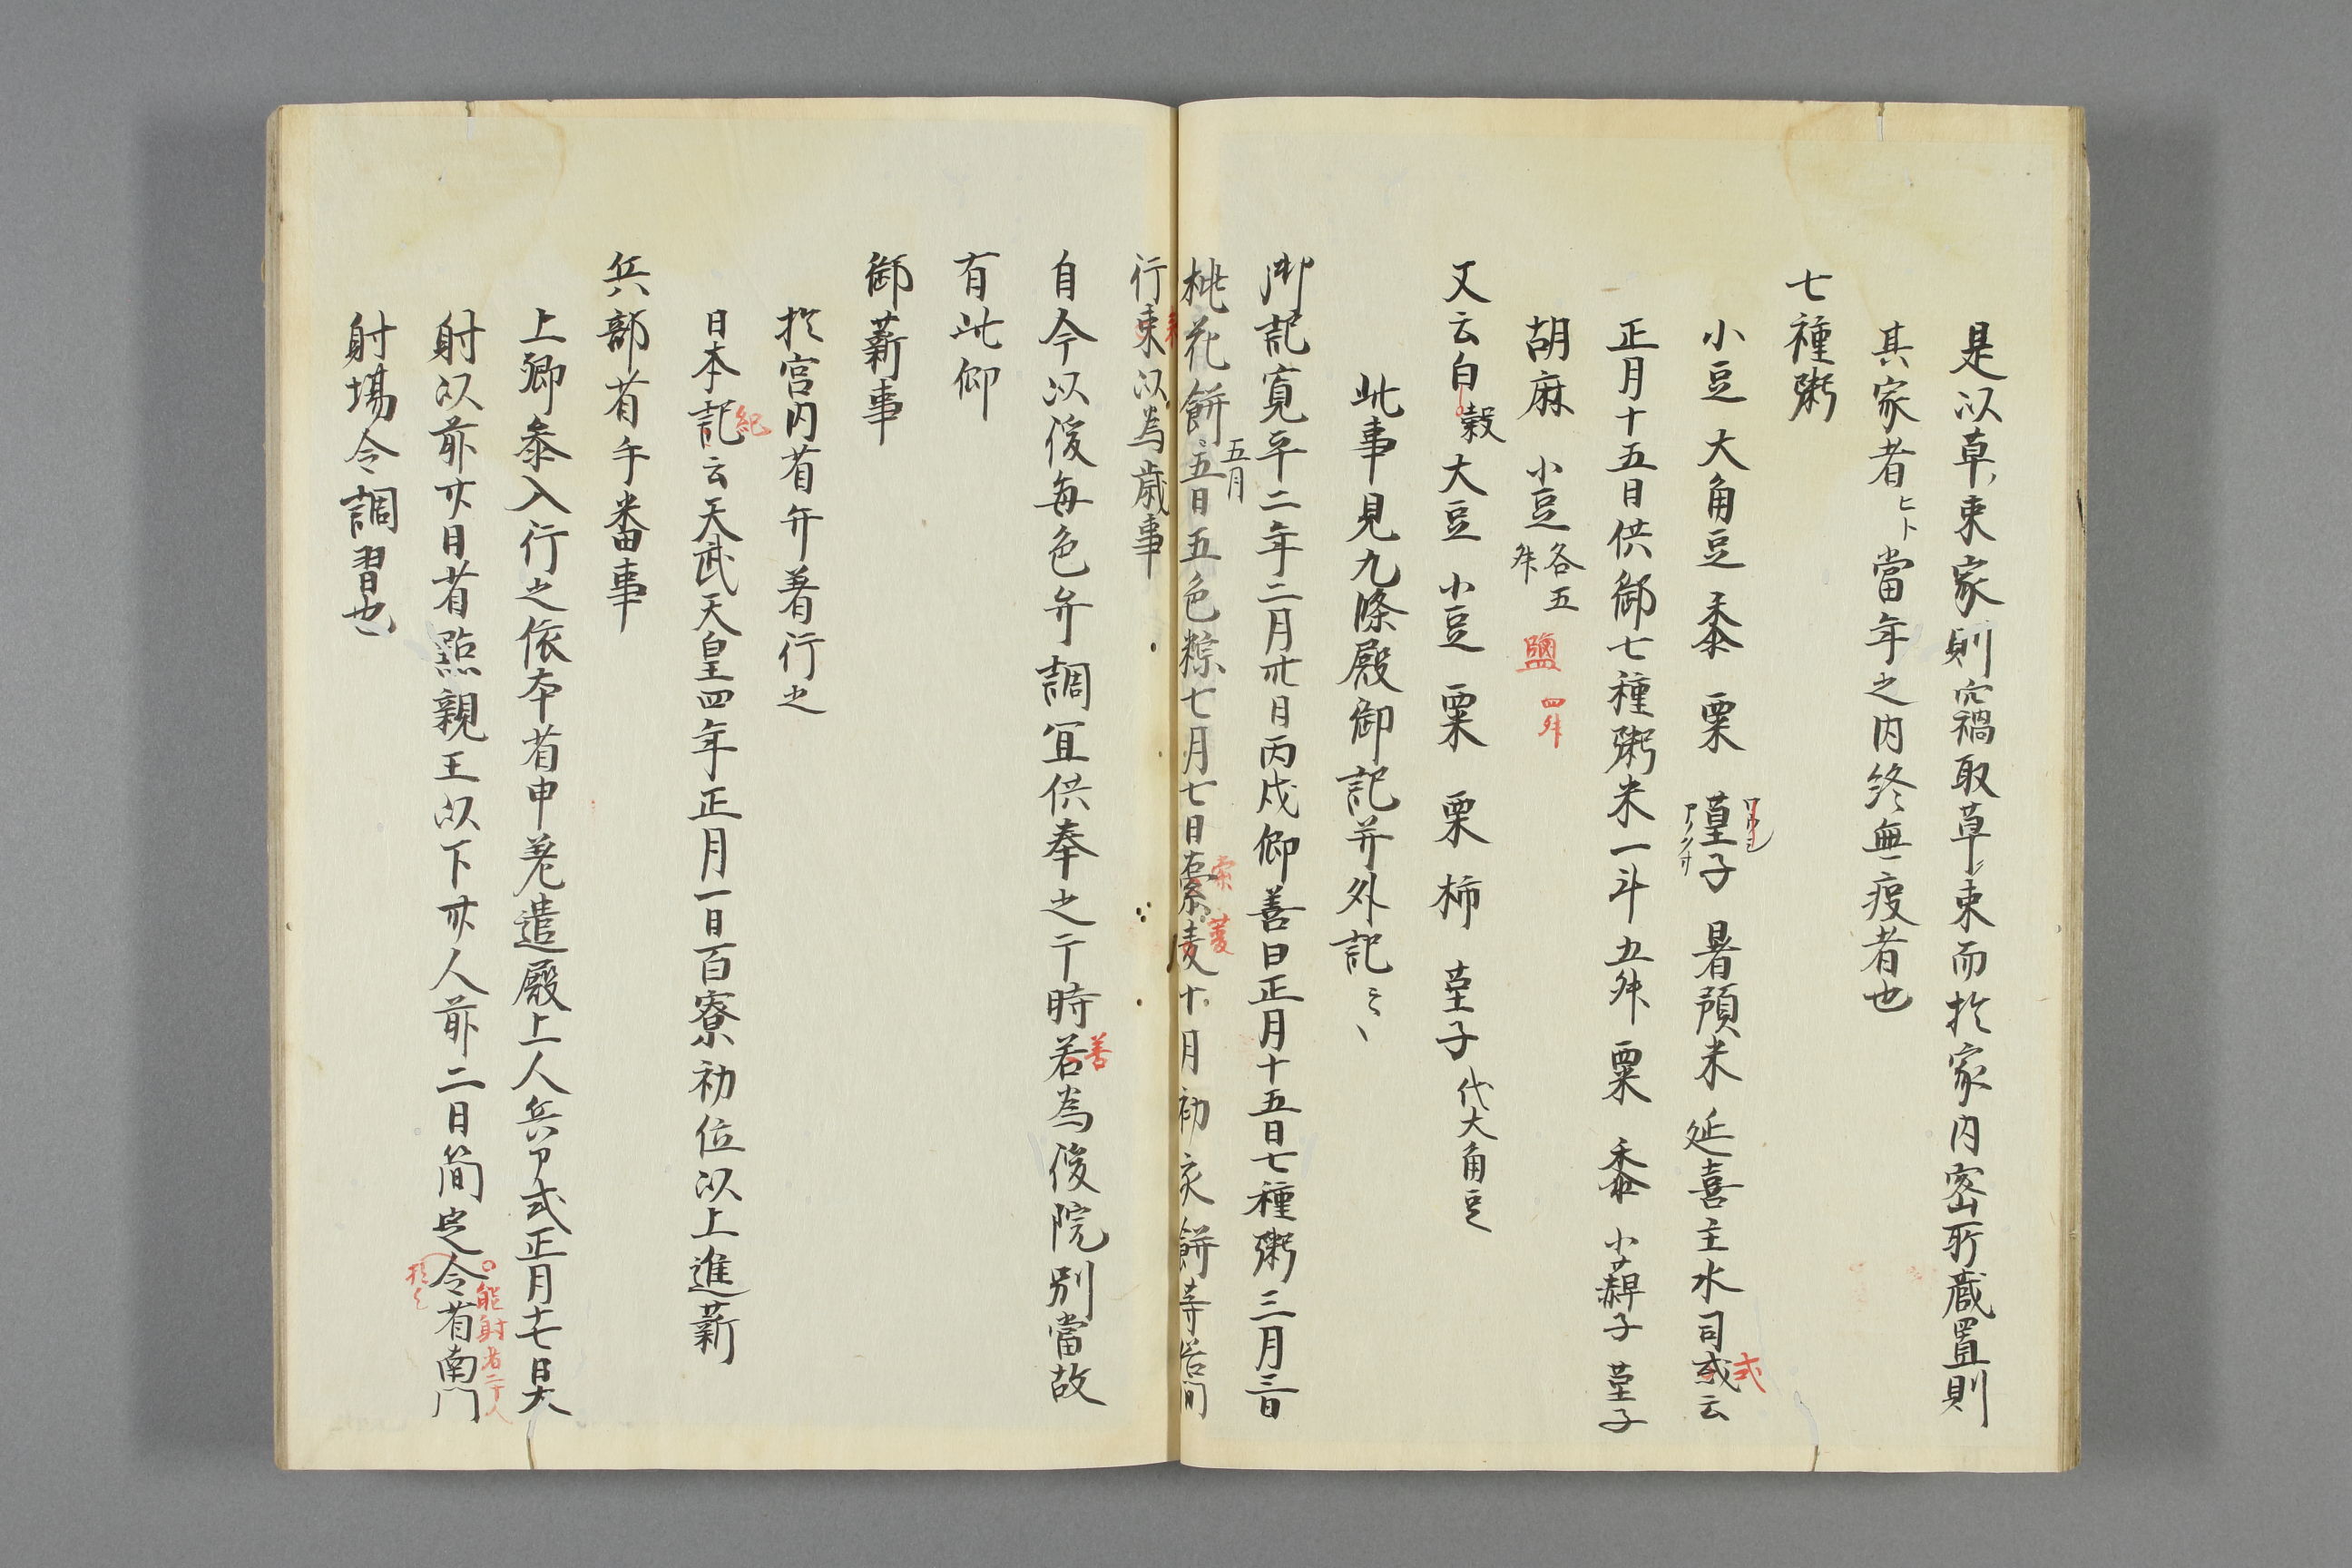 是以草束家則禍取草〻束而於家内密所蔵置則
其家者ヒト當年之内終無疫者也
七種粥
小豆 大角豆 黍 粟 菫子 暑預 米 延喜主水司或云
式
正月十五日供御七種粥米一斗五升 粟 黍 小薭子 菫子
胡麻 小豆各五升 鹽四升
又云白穀 大豆 小豆 粟 栗 柿 菫子代大角豆
此事見九條殿御記并外記云〻
御記寛平二年二月卅日丙戌仰善曰正月十五日七種粥三月三日
桃花餅五月五日五色粽七月七日索麦十月初亥餅等俗間
索 麦
行来以為歳事
来
自今以後毎色弁調宜供奉之于時若為後院別當故
善
有此仰
御薪事
於宮内省弁著行之
日本記云天武天皇四年正月一日百寮初位以上進薪
紀
兵部省手番事
上卿参入行之依本省申差遣殿上人兵部式正月十七日大
射以前廿日省點親王以下卅人前二日簡定令省南門
能射者二十人
於
射場令調習也